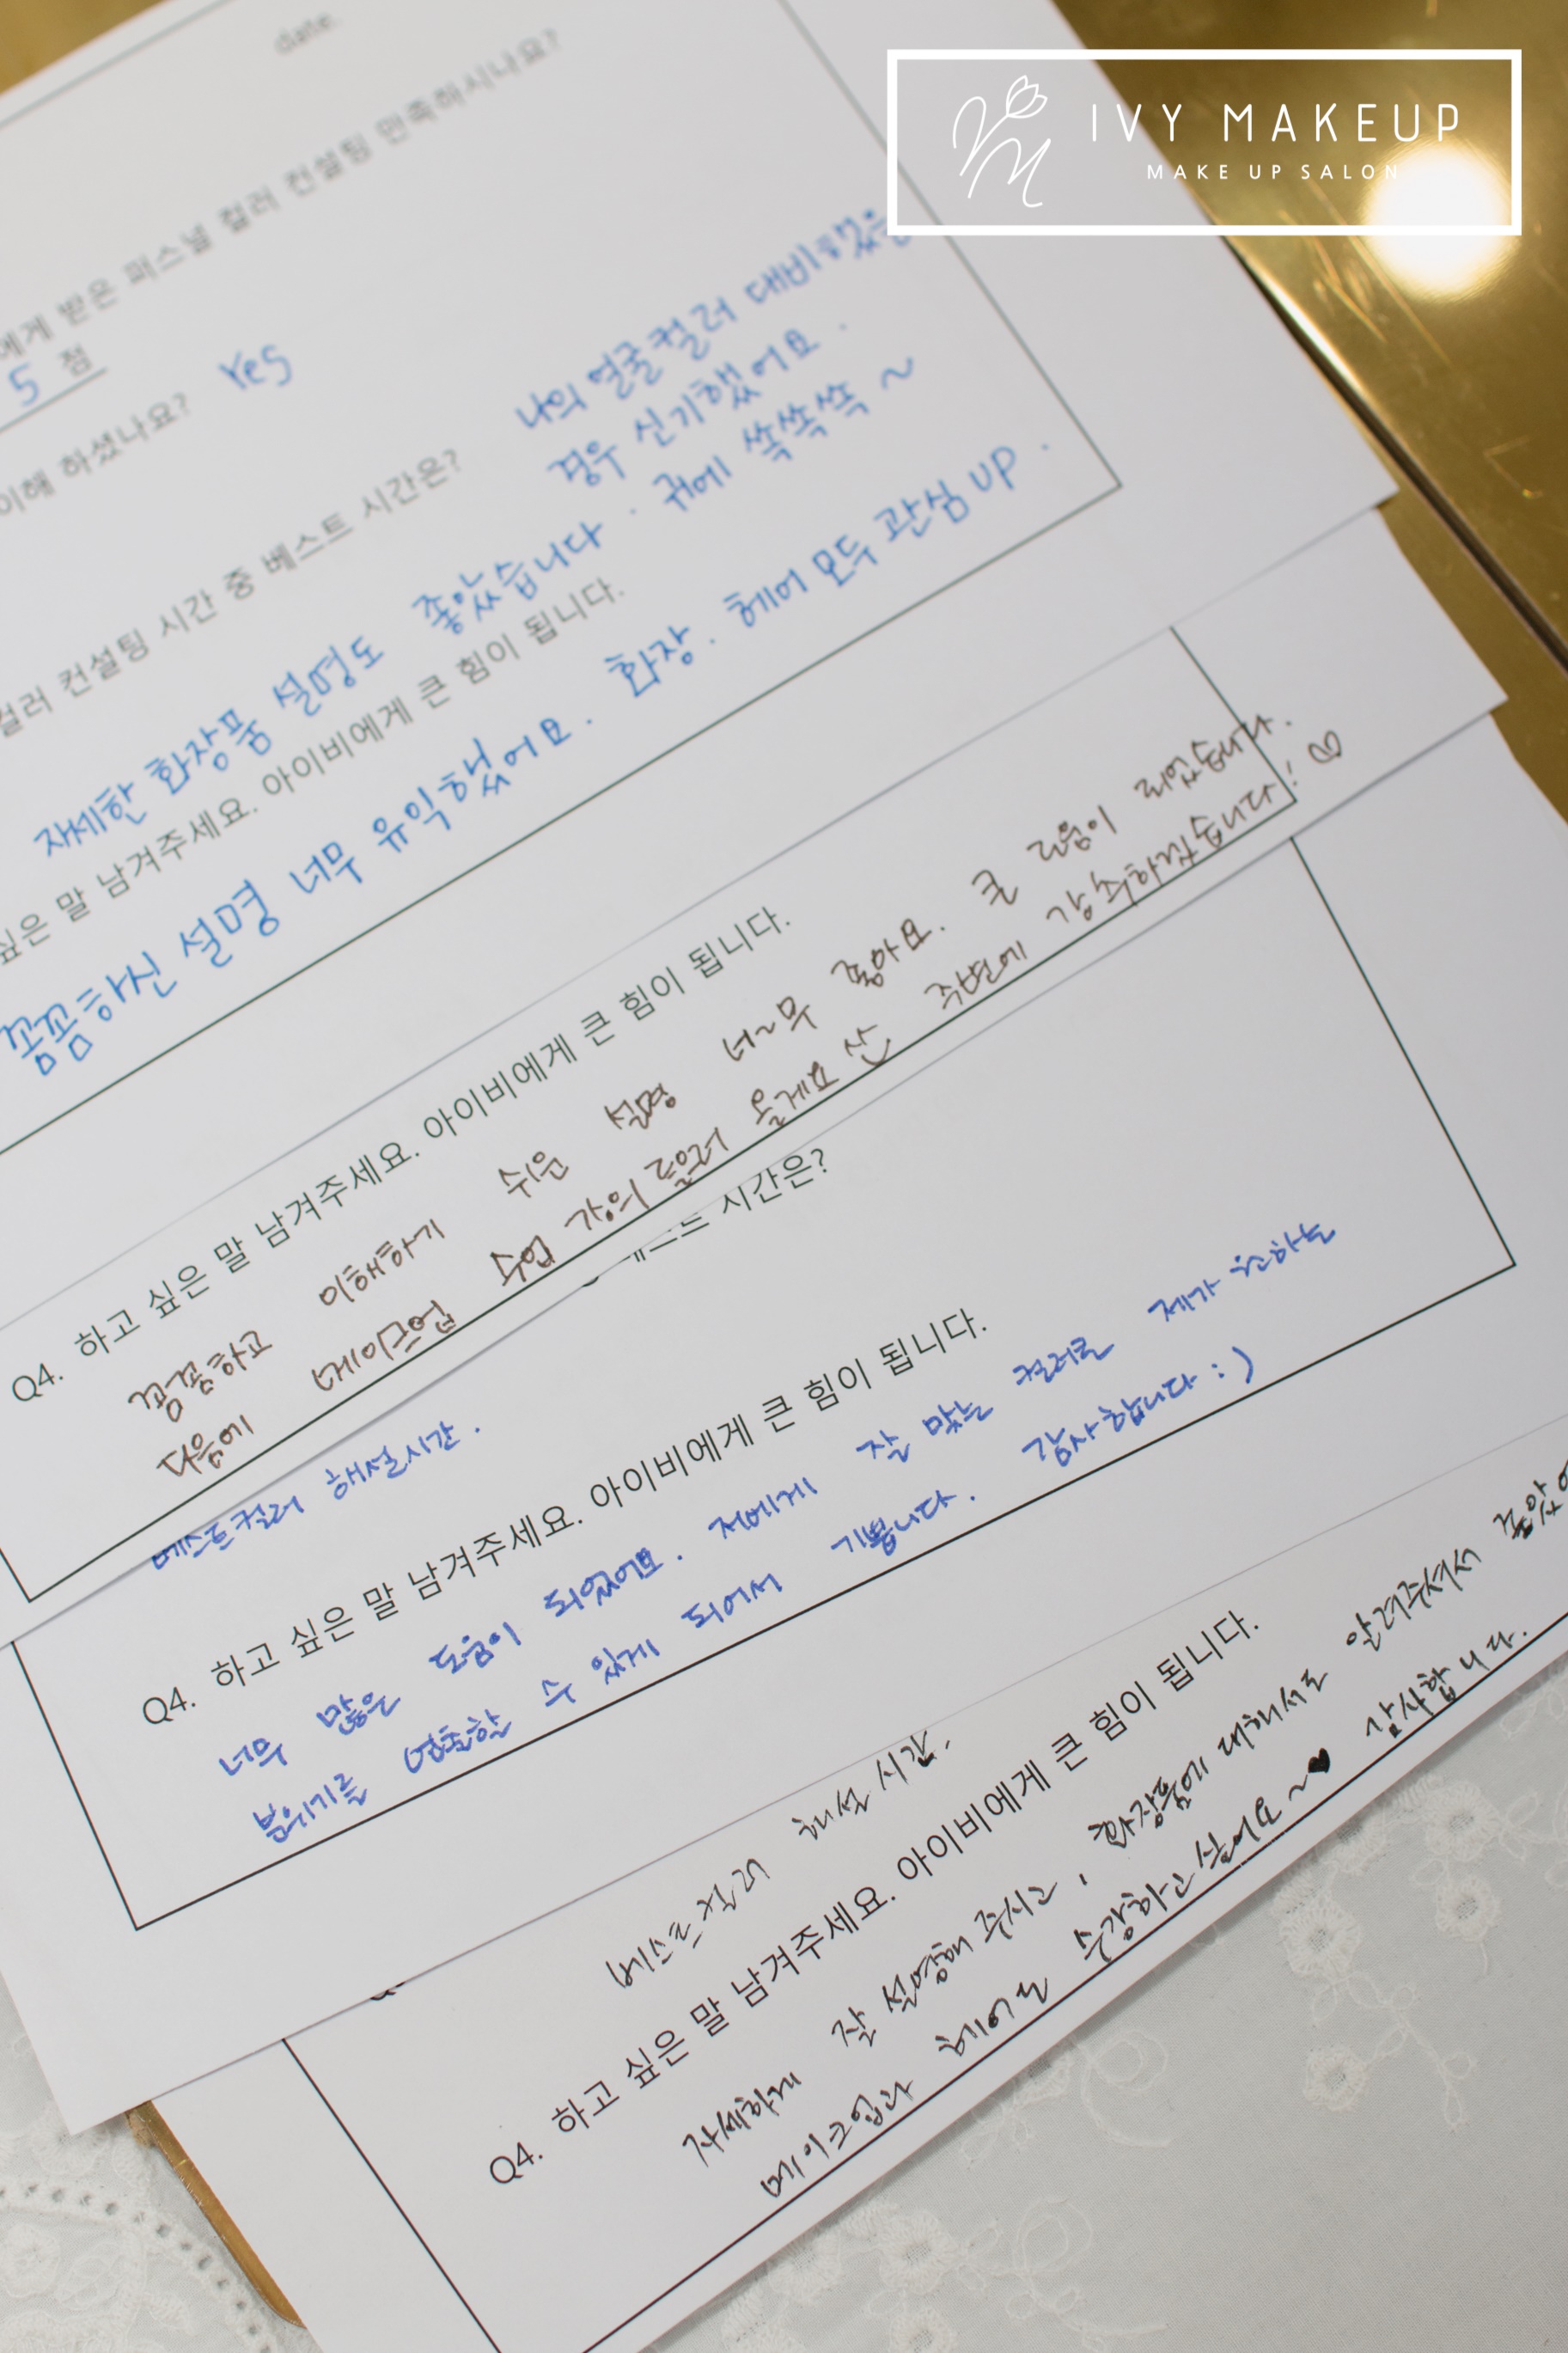 IVY MAKEUP
MAKE UP SALON
date.
에게 받은 퍼스널 컬러 컨설팅 만족하시나요?
5 점
이해 하셨나요? Yes
컬러 컨설팅 시간 중 베스트 시간은?
나의 얼굴컬러 대비
경우 신기했어요.
자세한 화장품 설명도 좋았습니다. 귀에 쏙쏙쏙~
싶은 말 남겨주세요. 아이비에게 큰 힘이 됩니다.
꼼꼼하신 설명 너무 유익했어요. 화장. 헤어 모두 관심 UP.
Q4. 하고 싶은 말 남겨주세요. 아이비에게 큰 힘이 됩니다.
꼼꼼하고 이해하기 쉬운 설명 너~무 좋아요. 큰 도움이 되었습니다.
다음에 메이크업 수업 강의 들으러 올게요 주변에 강추하겠습니다! ♡
시간은?
베스트컬러 해설시간.
Q4. 하고 싶은 말 남겨주세요. 아이비에게 큰 힘이 됩니다.
너무 많은 도움이 되었어요. 저에게 잘 맞는 컬러로 제가 원하는
분위기를 연출할 수 있게 되어서 기쁩니다. 감사합니다 :)
베스트컬러 해설 시간.
Q4. 하고 싶은 말 남겨주세요. 아이비에게 큰 힘이 됩니다.
자세하게 잘 설명해 주시고, 화장품에 대해서도 알려주셔서 좋았어
메이크업과 헤어도 수강하고 싶어요~♥ 감사합니다.